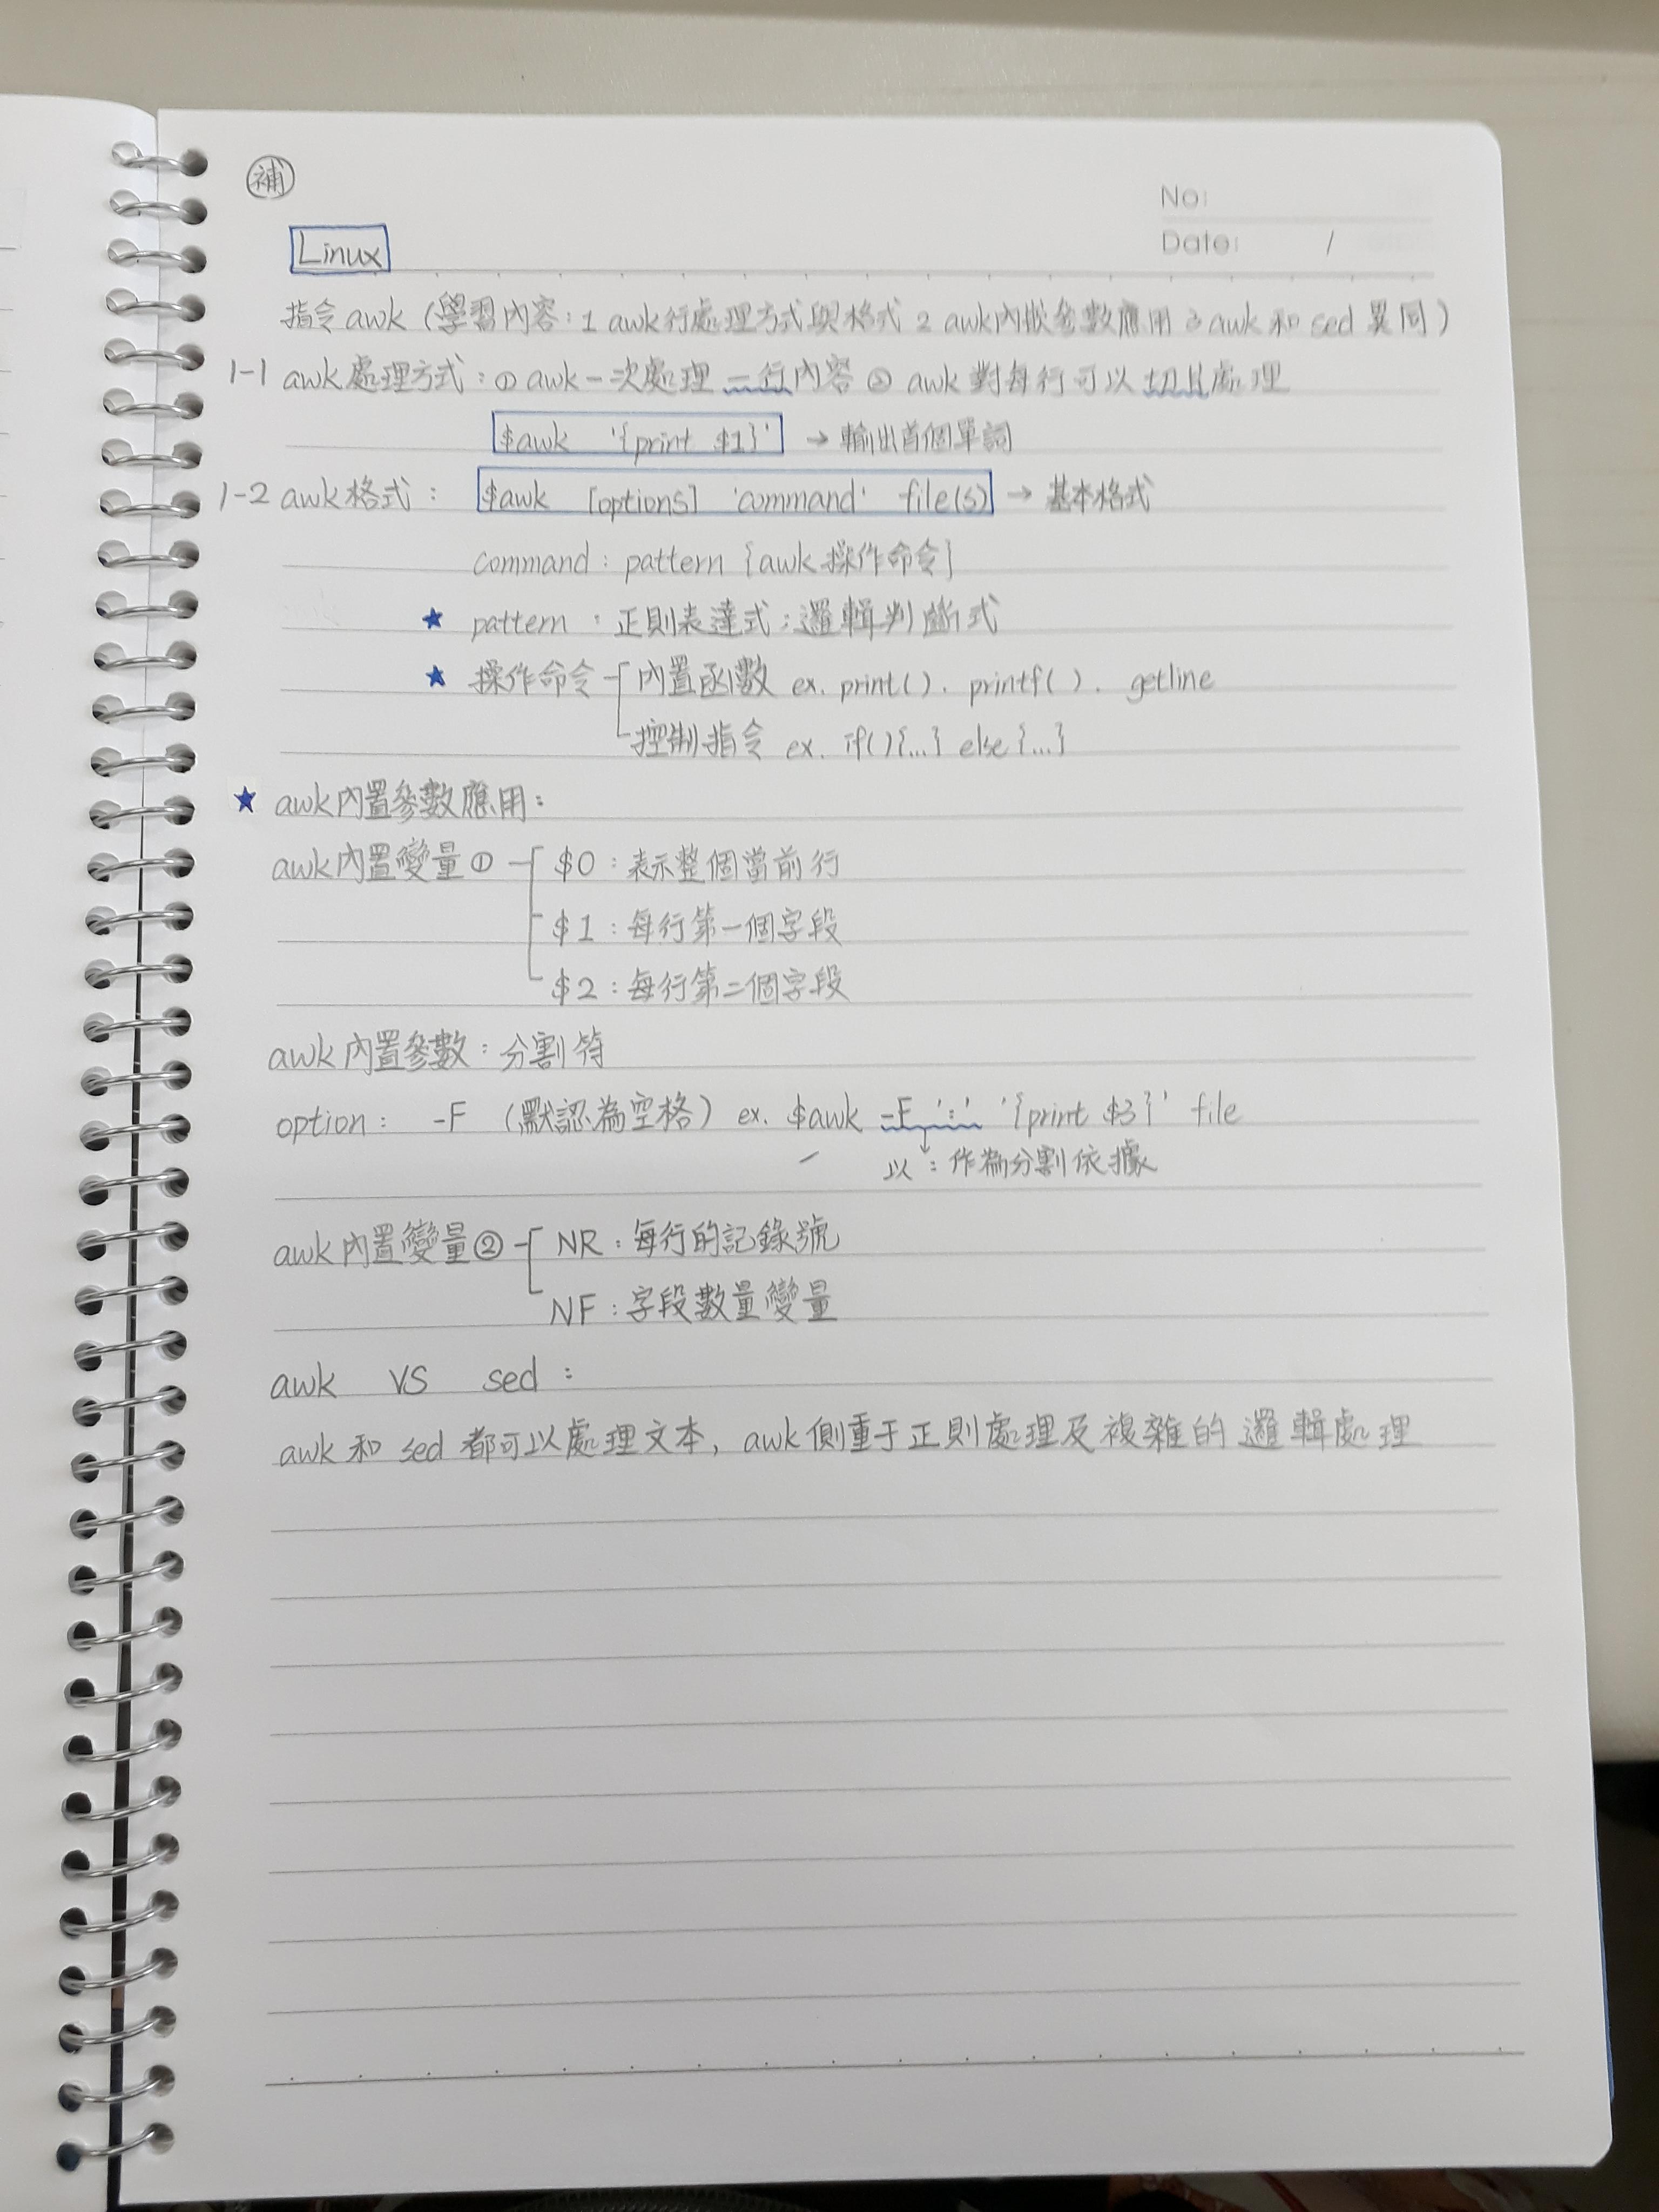 補
No:
Date: /
Linux
指令 awk (學習內容：1 awk行處理方式與格式 2 awk內嵌參數應用 3 awk 和 sed 異同)
1-1 awk 處理方式：① awk 一次處理 一行內容 ② awk 對每行可以切片處理
$awk '{print $1}' → 輸出首個單詞
1-2 awk 格式： $awk [options] 'command' file(s) → 基本格式
command : pattern {awk 操作命令}
★ pattern : 正則表達式；邏輯判斷式
★ 操作命令 內置函數 ex. print(). printf(). getline
控制指令 ex. if(){...} else{...}
★ awk 內置參數應用：
awk 內置變量① $0 : 表示整個當前行
$1 : 每行第一個字段
$2 : 每行第二個字段
awk 內置參數：分割符
option : -F (默認為空格) ex. $awk -F ':' '{print $3}' file
以 : 作為分割依據
awk 內置變量② NR : 每行的記錄號
NF : 字段數量變量
awk VS sed :
awk 和 sed 都可以處理文本, awk 側重于正則處理及複雜的邏輯處理